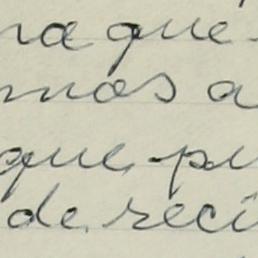 ra que
mos a
que pu
de reci